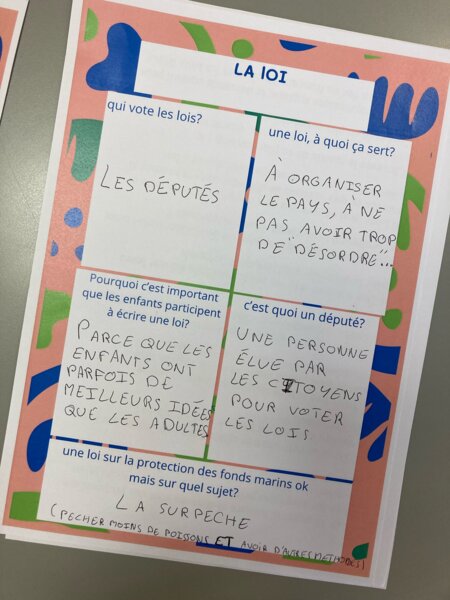 LA lOI
qui vote les lois?
LES DÉPUTÉS
une loi, à quoi ça sert?
À ORGANISER
LE PAYS, À NE
PAS AVOIR TROP
DE "DÉSORDRE"...
Pourquoi c'est important
que les enfants participent
à écrire une loi?
PARCE QUE LES
ENFANTS ONT
PARFOIS DE
MEILLEURS IDÉES
QUE LES ADULTES
c'est quoi un député?
UNE PERSONNE
ÉLUE PAR
LES CITOYENS
POUR VOTER
LES LOIS
une loi sur la protection des fonds marins ok
mais sur quel sujet?
LA SURPECHE
(PECHER MOINS DE POISSONS ET AVOIR D'AUTRES METHODES)